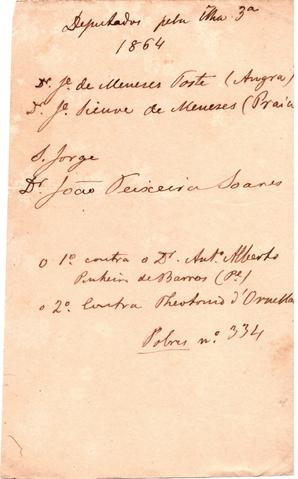 Deputados pela ilha 3ª
1864
Dr. Jº. de Meneses Forte (Angra)
Dr. Jº. Sieuve de Meneses (Praia
S. Jorge
Dr. João Teixeira Soares
O 1º contra o Dr. Antº. Alberto
Pinheiro de Barros (Pª)
o 2º. Contra Theotonio d'Ornellas
Pobres nº. 334